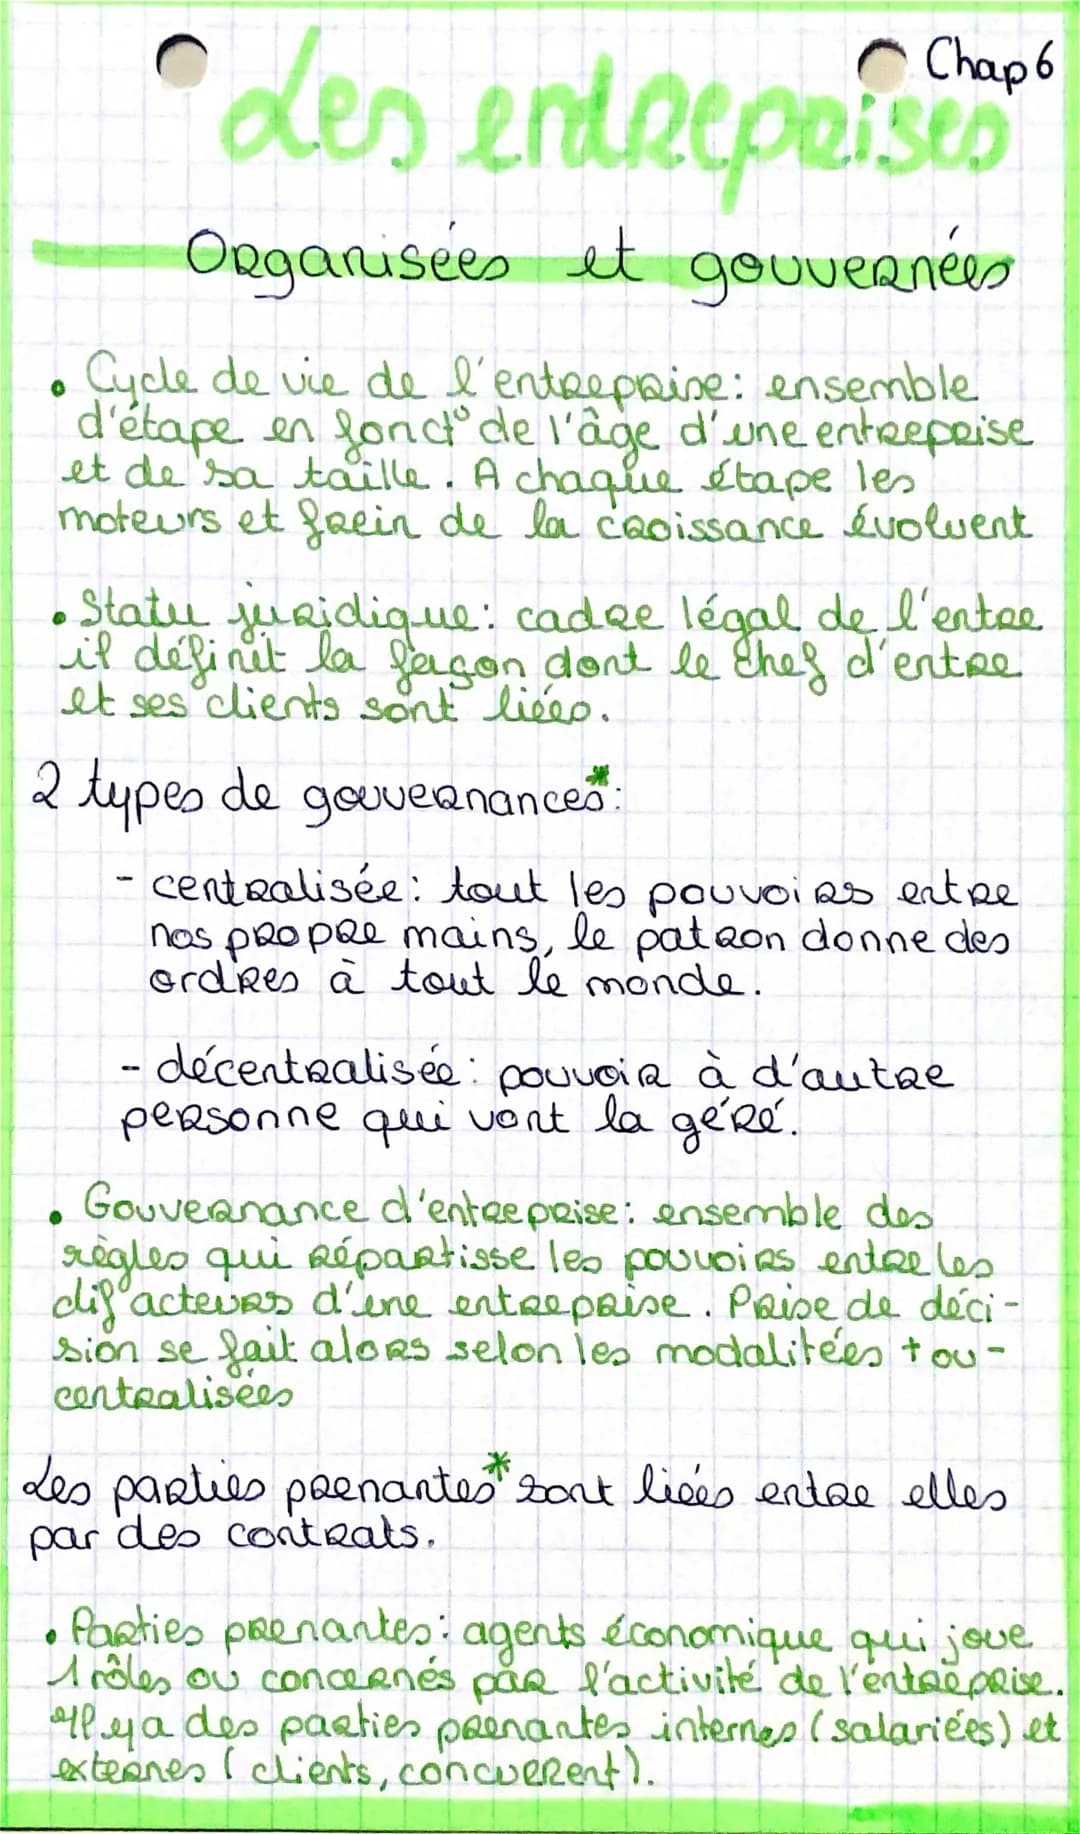 Chap 6
Les entreprises
Organisées et gouvernées
• Cycle de vie de l'entreprise: ensemble
d'étape en fonct° de l'âge d'une entrepeise
et de sa taille. A chaque étape les
moteurs et frein de la croissance évoluent
• Statu juridique: cadre légal de l'entre
il définit la façon dont le chef d'entre
et ses clients sont liéés.
2 types de gouvernances*:
- centralisée: tout les pouvoirs entre
nos propre mains, le patron donne des
ordres à tout le monde.
- décentralisée: pouvoir à d'autre
personne qui vont la géré.
• Gouvernance d'entreprise: ensemble des
règles qui répartisse les pouvoirs entre les
dif acteurs d'une entreprise. Prise de déci-
sion se fait alors selon les modalitées + ou -
centralisées
Les parties prenantes* sont liéés entre elles
par des contrats.
• Parties prenantes: agents économique qui joue
1 rôles ou concernés par l'activité de l'entreprise.
Il y a des parties prenantes internes (salariées) et
externes (clients, concurrent).